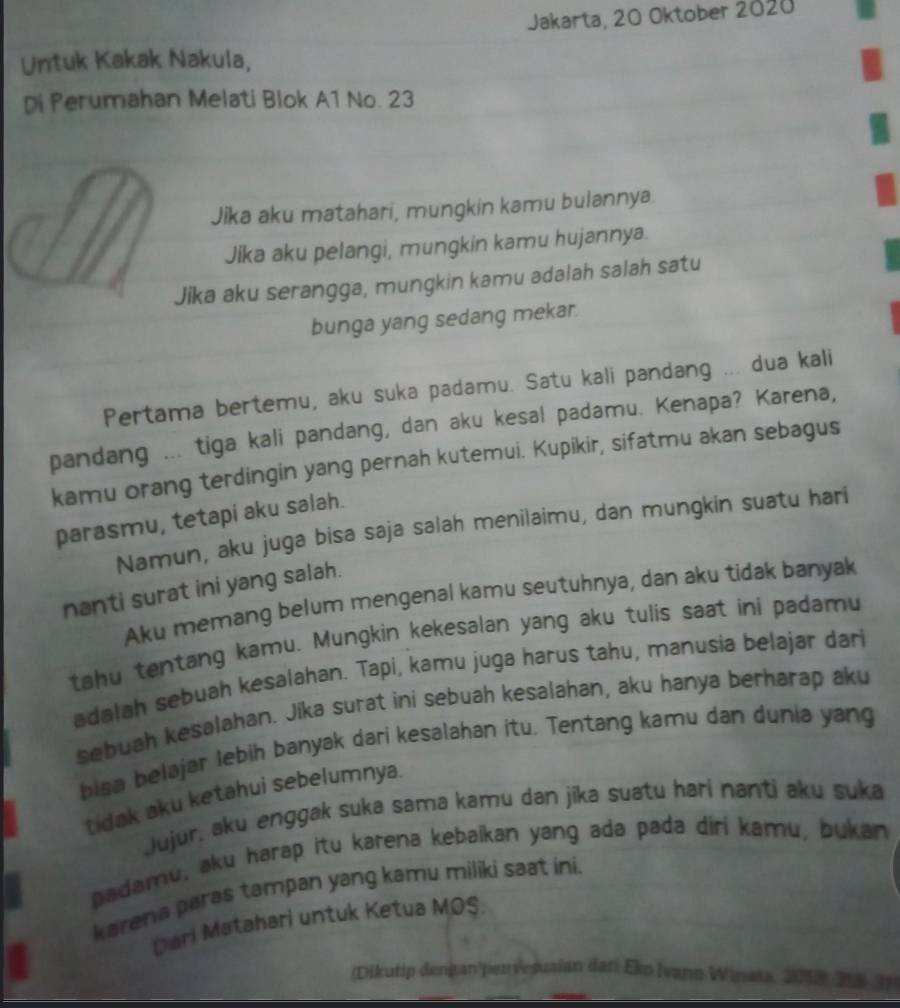 Jakarta, 20 Oktober 2020
Untuk Kakak Nakula,
Di Perumahan Melati Blok A1 No. 23
Jika aku matahari, mungkin kamu bulannya.
Jika aku pelangi, mungkin kamu hujannya.
Jika aku serangga, mungkin kamu adalah salah satu
bunga yang sedang mekar.
Pertama bertemu, aku suka padamu. Satu kali pandang ... dua kali
pandang ... tiga kali pandang, dan aku kesal padamu. Kenapa? Karena,
kamu orang terdingin yang pernah kutemui. Kupikir, sifatmu akan sebagus
parasmu, tetapi aku salah.
Namun, aku juga bisa saja salah menilaimu, dan mungkin suatu hari
nanti surat ini yang salah.
Aku memang belum mengenal kamu seutuhnya, dan aku tidak banyak
tahu tentang kamu. Mungkin kekesalan yang aku tulis saat ini padamu
adalah sebuah kesalahan. Tapi, kamu juga harus tahu, manusia belajar dari
sebuah kesalahan. Jika surat ini sebuah kesalahan, aku hanya berharap aku
bisa belajar lebih banyak dari kesalahan itu. Tentang kamu dan dunia yang
tidak aku ketahui sebelumnya.
Jujur, aku enggak suka sama kamu dan jika suatu hari nanti aku suka
padamu, aku harap itu karena kebaikan yang ada pada diri kamu, bukan
karena paras tampan yang kamu miliki saat ini.
Dari Matahari untuk Ketua MOS.
(Dikutip dengan penyesuaian dari Eko Ivano Winata,